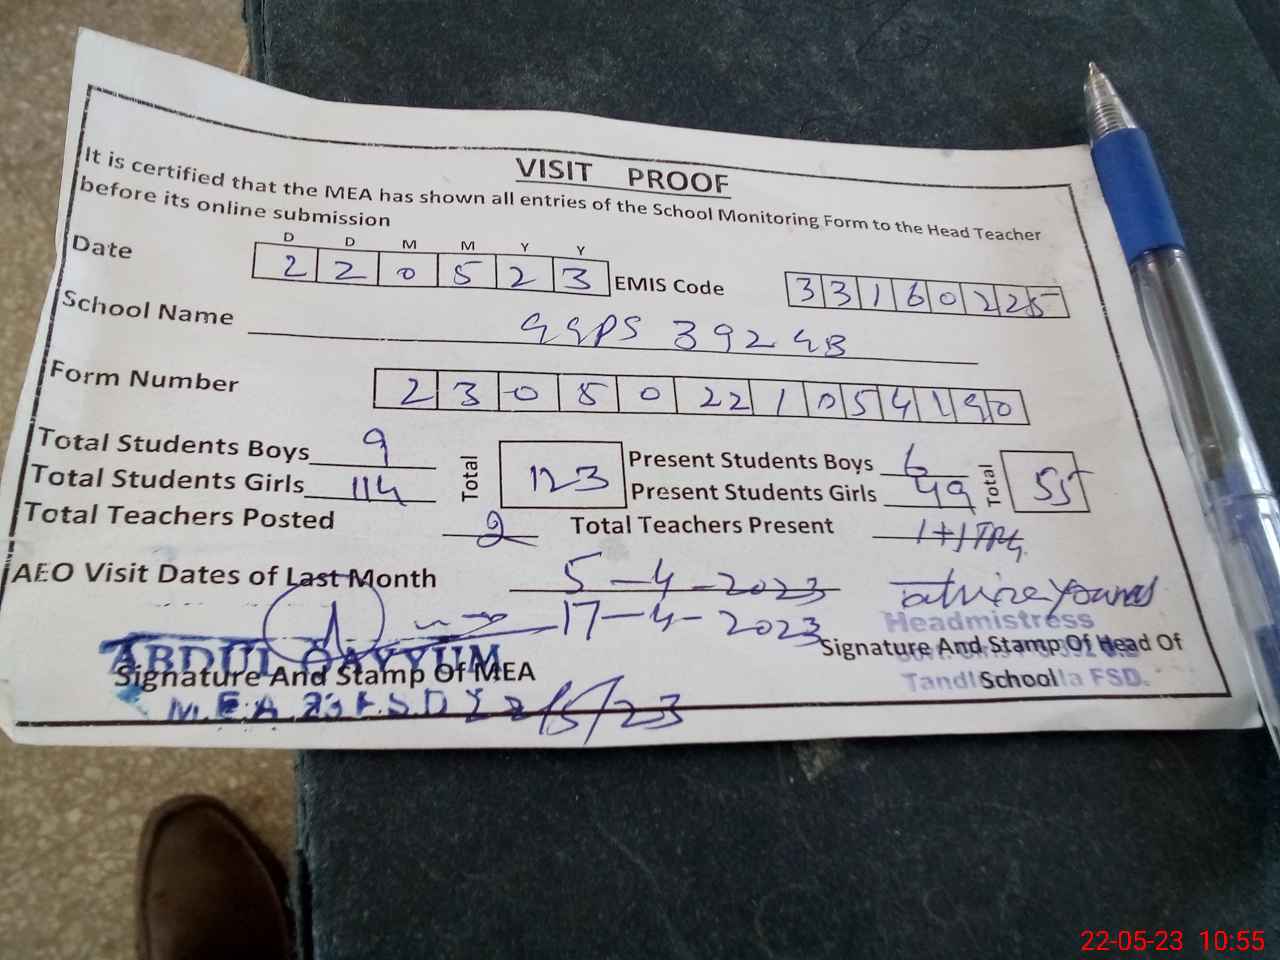 VISIT PROOF
It is certified that the MEA has shown all entries of the School Monitoring Form to the Head Teacher
before its online submission
D D M M Y Y
Date 2 2 0 5 2 3 EMIS Code 3 3 1 6 0 2 2 5
School Name GGPS 392 GB
Form Number 2 3 0 5 0 2 2 1 0 5 4 1 9 0
Total Students Boys 9 Total 123 Present Students Boys 6 Total 55
Total Students Girls 114 Present Students Girls 49
Total Teachers Posted 2 Total Teachers Present 1+1TRG
AEO Visit Dates of Last Month 5-4-2023
17-4-2023
Headmistress
ABDUL QAYYUM
Signature And Stamp Of MEA
Signature And Stamp Of Head Of
School
FSD.
M.E.A 23 F.S.D 22/5/23
22-05-23 10:55